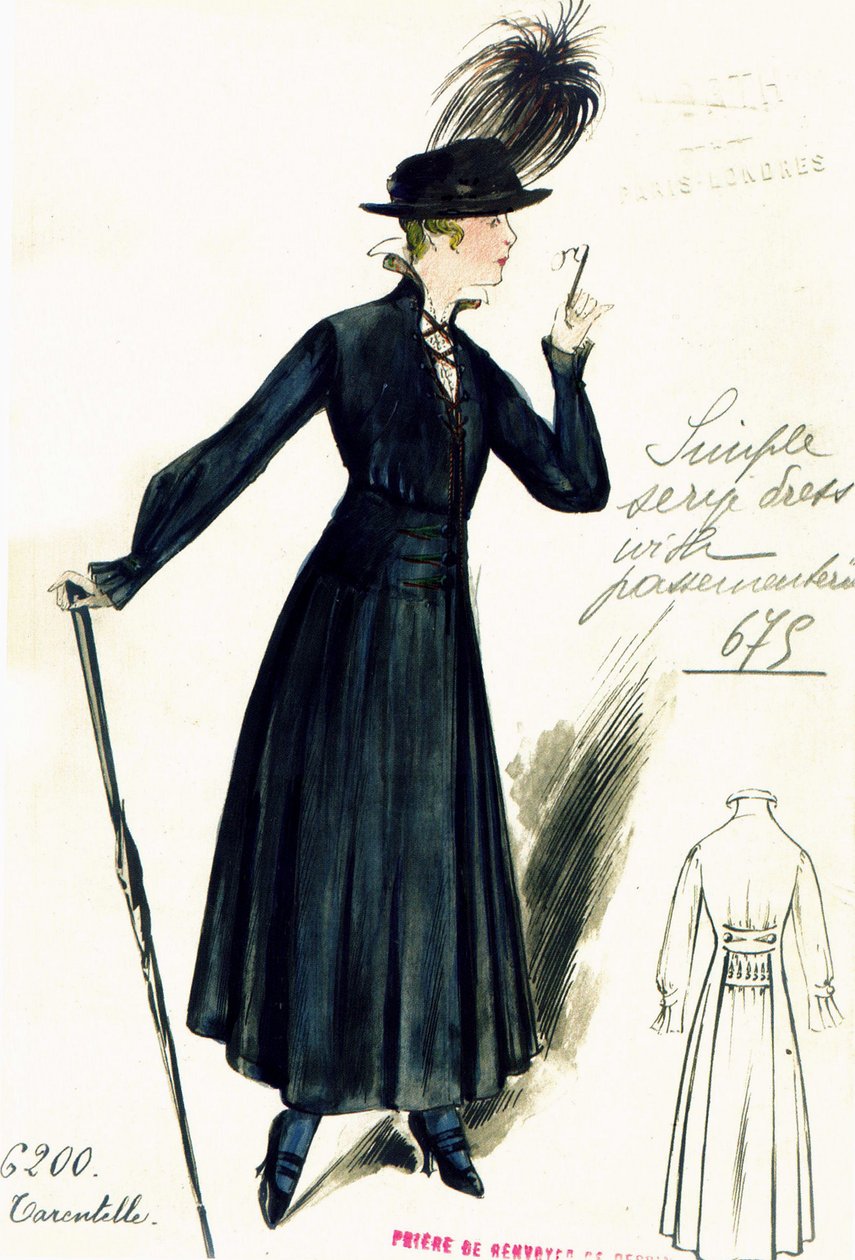 PARIS-LONDRES
Simple
serge dress
with
passementerie
675
6200.
Tarentelle.
PRIÈRE DE RENVOYER CE DESSIN